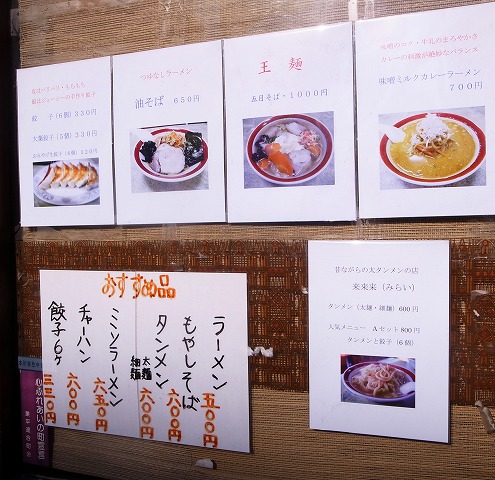 皮はパリパリ・もちもち
餡はジューシーの手作り餃子
餃子(6個)330円
大葉餃子(5個)330円
つゆなしラーメン
油そば 650円
王麺
五目そば・1000円
味噌のコク・牛乳のまろやかさ
カレーの刺激が絶妙なバランス
味噌ミルクカレーラーメン
700円
おすすめ品
ラーメン 五〇〇円
もやしそば 六〇〇円
タンメン 太麺 細麺 六〇〇円
ミソラーメン 六五〇円
チャーハン 六〇〇円
餃子6ケ 三三〇円
昔ながらの太タンメンの店
来来来(みらい)
タンメン(太麺・細麺)600円
人気メニュー Aセット800円
タンメンと餃子(6個)
心ふれあいの町宣言